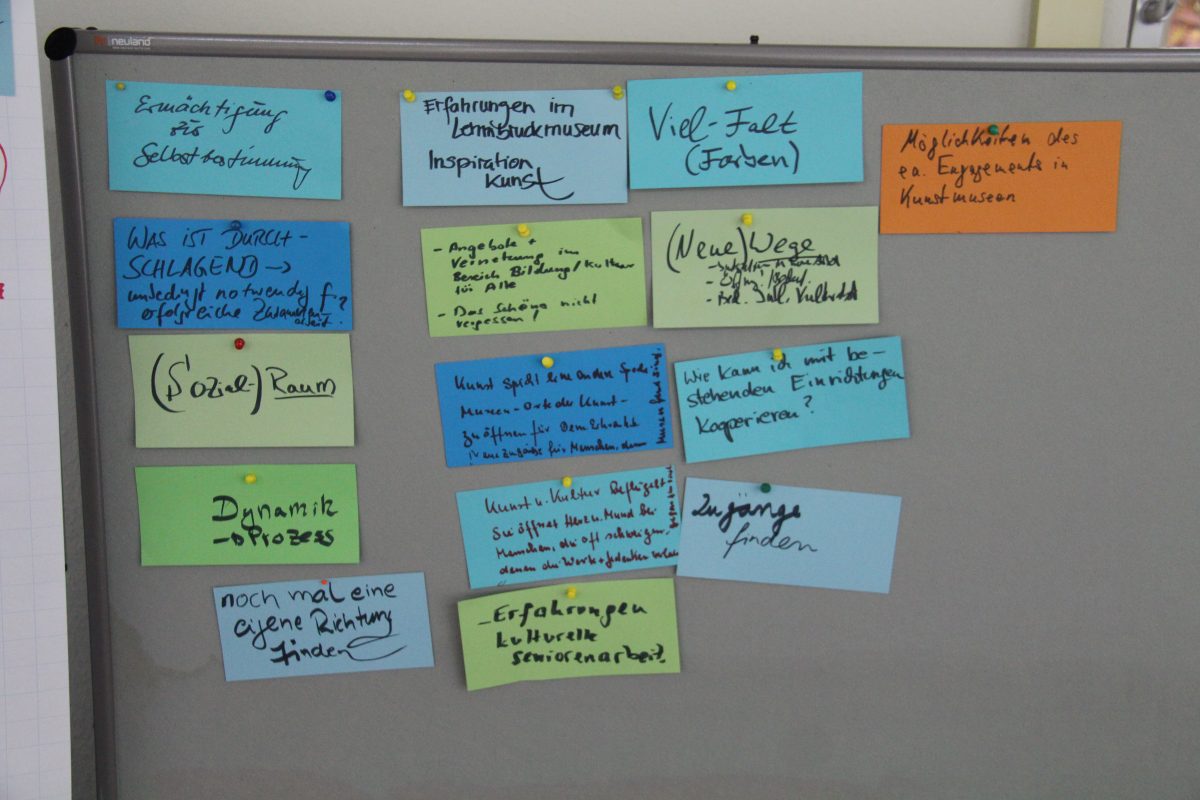 neuland
Ermächtigung
zur
Selbstbestimmung
WAS IST DURCH-
SCHLAGEND →
unbedingt notwendig f.
erfolgreiche Zusammen-
arbeit?
(Sozial-) Raum
Dynamik
→ Prozess
noch mal eine
eigene Richtung
finden
Erfahrungen im
Lehmbruckmuseum
Inspiration
Kunst
- Angebote +
Vernetzung im
Bereich Bildung/Kultur
für Alle
- Das Schöne nicht
vergessen!
Kunst spricht eine andere Sprache
Museen - Orte der Kunst -
zu öffnen für Demenzkranke
Zugänge für Menschen, denen
Kunst u. Kultur beflügelt
Sie öffnet Herz u. Mund bei
Menschen, die oft schweigen,
denen die Worte + Gedanken
- Erfahrungen
kulturelle
Seniorenarbeit
Viel-Falt
(Farben)
(Neue) Wege
Wie kann ich mit be-
stehenden Einrichtungen
kooperieren?
Zugänge
finden
Möglichkeiten des
ea. Engagements in
Kunstmuseen